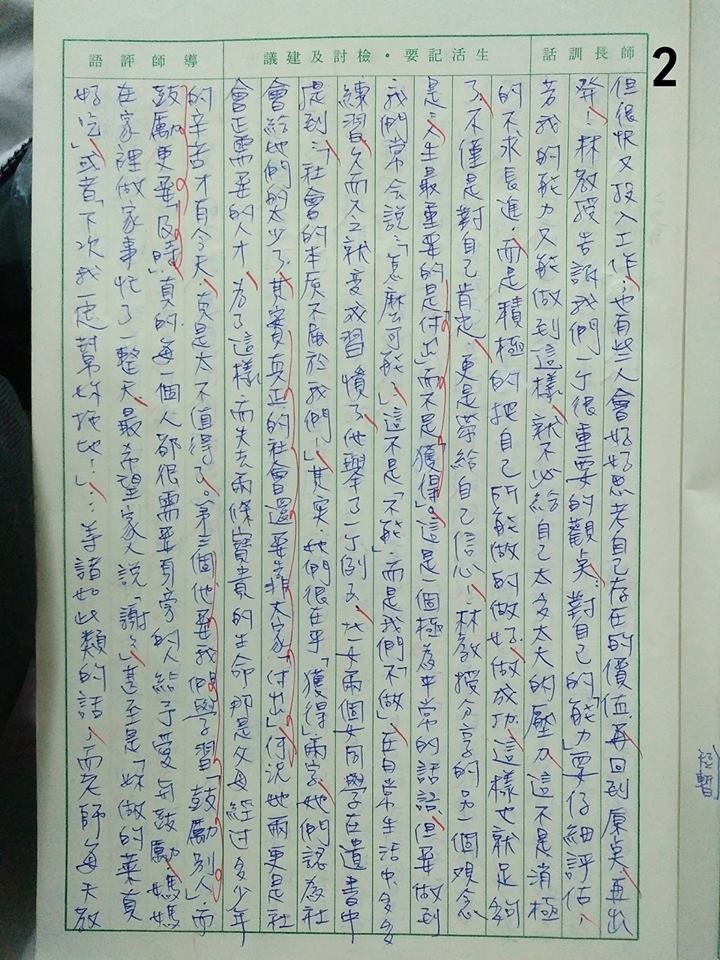 師長訓話
生活記要・檢討及建議
導師評語
2
但很快又投入工作；也有些人會好好思考自己存在的價值，再回到原點，再出
發！林教授告訴我們一个很重要的觀點：對自己的「能力」要仔細評估，
若我的能力只能做到這樣，就不必給自己太多太大的壓力，這不是消極
的不求長進，而是積極的把自己所能做的做好、做成功，這樣也就足夠
了，不僅是對自己肯定，更是帶給自己信心！林教授分享的另一個觀念
是：人生最重要的是「付出」而不是「獲得」。這是一個極為平常的話語，但要做到
我們常會說：「怎麼可能」，這不是「不能」，而是我們「不做」，在日常生活中，多多
練習，久而久之就變成習慣了，他舉了一个例子，北一女兩個女同學在遺書中
提到：「社會的本質不屬於我們！」其實，她們很在乎「獲得」兩字，她們認為社
會給她們的太少了，其實真正的社會還要靠大家「付出」，何況她兩更是社
會正需要的人才，為了這樣，而失去兩條寶貴的生命，那是父母經過多少年
的辛苦才有今天，真是太不值得了。第三個他要我們學習「鼓勵別人」，而
鼓勵更要「及時」，真的，每一個人都很需要身旁的人給予愛与鼓勵，媽媽
在家裡做家事忙了一整天，最希望家人說「謝謝」，甚至是「妳做的菜真
好吃」，或者「下次我一定幫妳拖地！」…等諸如此類的話，而老師每天教